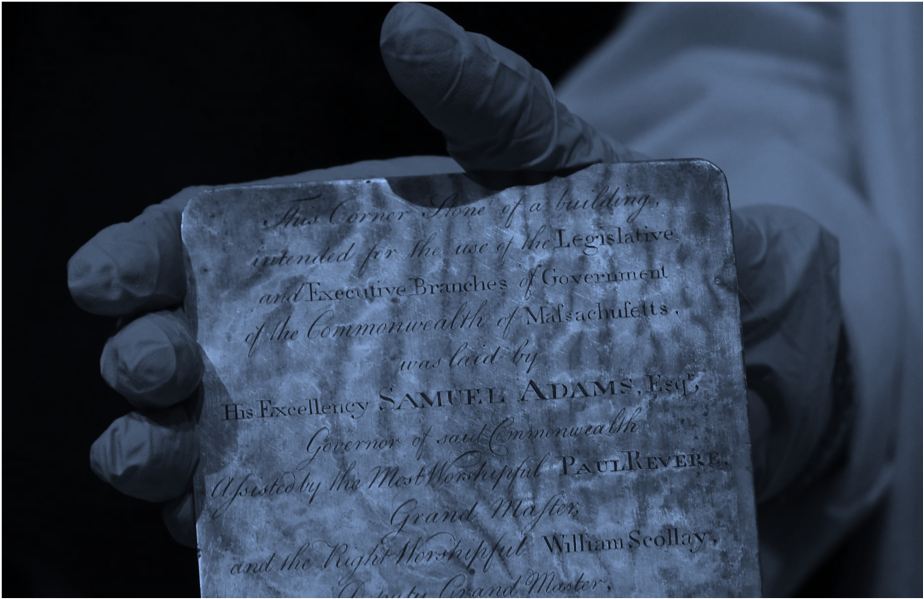 This Corner Stone of a building,
intended for the use of the Legislative
and Executive Branches of Government
of the Commonwealth of Maſsachuſetts,
was laid by
His Excellency SAMUEL ADAMS, Esqr,
Governor of said Commonwealth
Aſsisted by the Most Worshipful PAUL REVERE,
Grand Maſter,
and the Right Worshipful William Scollay,
Deputy Grand Maſter,